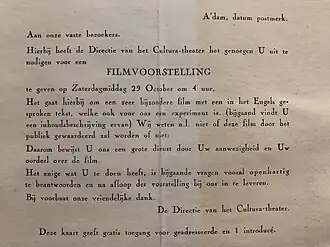 A'dam, datum postmerk.
Aan onze vaste bezoekers.
Hierbij heeft de Directie van het Cultura-theater het genoegen U uit te
nodigen voor een
FILMVOORSTELLING
te geven op Zaterdagmiddag 29 October om 4 uur.
Het gaat hierbij om een zeer bijzondere film met een in het Engels ge-
sproken tekst, welke ook voor ons een experiment is. (bijgaand vindt U
een inhoudsbeschrijving ervan) Wij weten n.l. niet of deze film door het
publiek gewaardeerd zal worden of niet.
Daarom bewijst U ons een grote dienst door Uw aanwezigheid en Uw
oordeel over de film.
Het enige wat U te doen heeft, is bijgaande vragen vooral openhartig
te beantwoorden en na afloop der voorstelling bij ons in te leveren.
Bij voorbaat onze vriendelijke dank.
De Directie van het Cultura-theater.
Deze kaart geeft gratis toegang voor geadresseerde en 1 introducé.